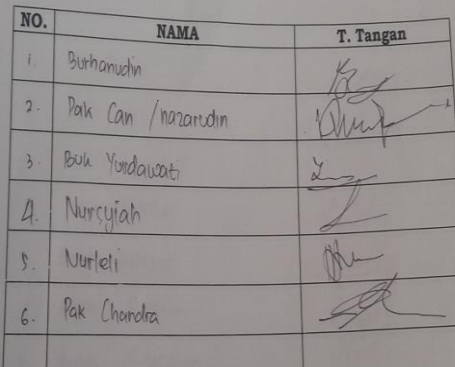 NO. NAMA T. Tangan
1. Burhanudin
2. Pak Can / nazarudin
3. Buk Yurdawati
4. Nursyiah
5. Nurleli
6. Pak Chandra